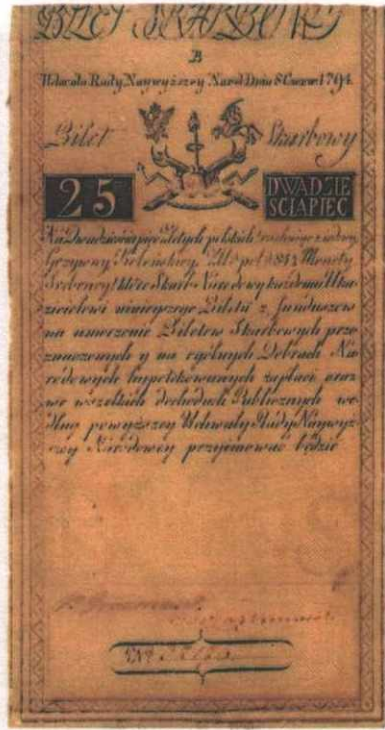 B
Uchwała Rady Naywyższey Narod. Dnia 8 Czerwc. 1794.
Bilet Skarbowy
25 DWADZIE
SCIAPIEC
Na Dwadzieściapięć Złotych polskich
Grzywny Kolonskiey Zł. pol. 84½ Monety
Srebrney, które Skarb Narodowy każdemu Oka
zicielowi ninieyszego Biletu z funduszow
na umorzenie Biletow Skarbowych prze
znaczonych y na ogólnych Dobrach Na
rodowych hypotekowanych zapłaci oraz
we wszelkich dochodach Publicznych we
dług powyższey Uchwały Rady Naywyż
szey Narodowey przyimować będzie